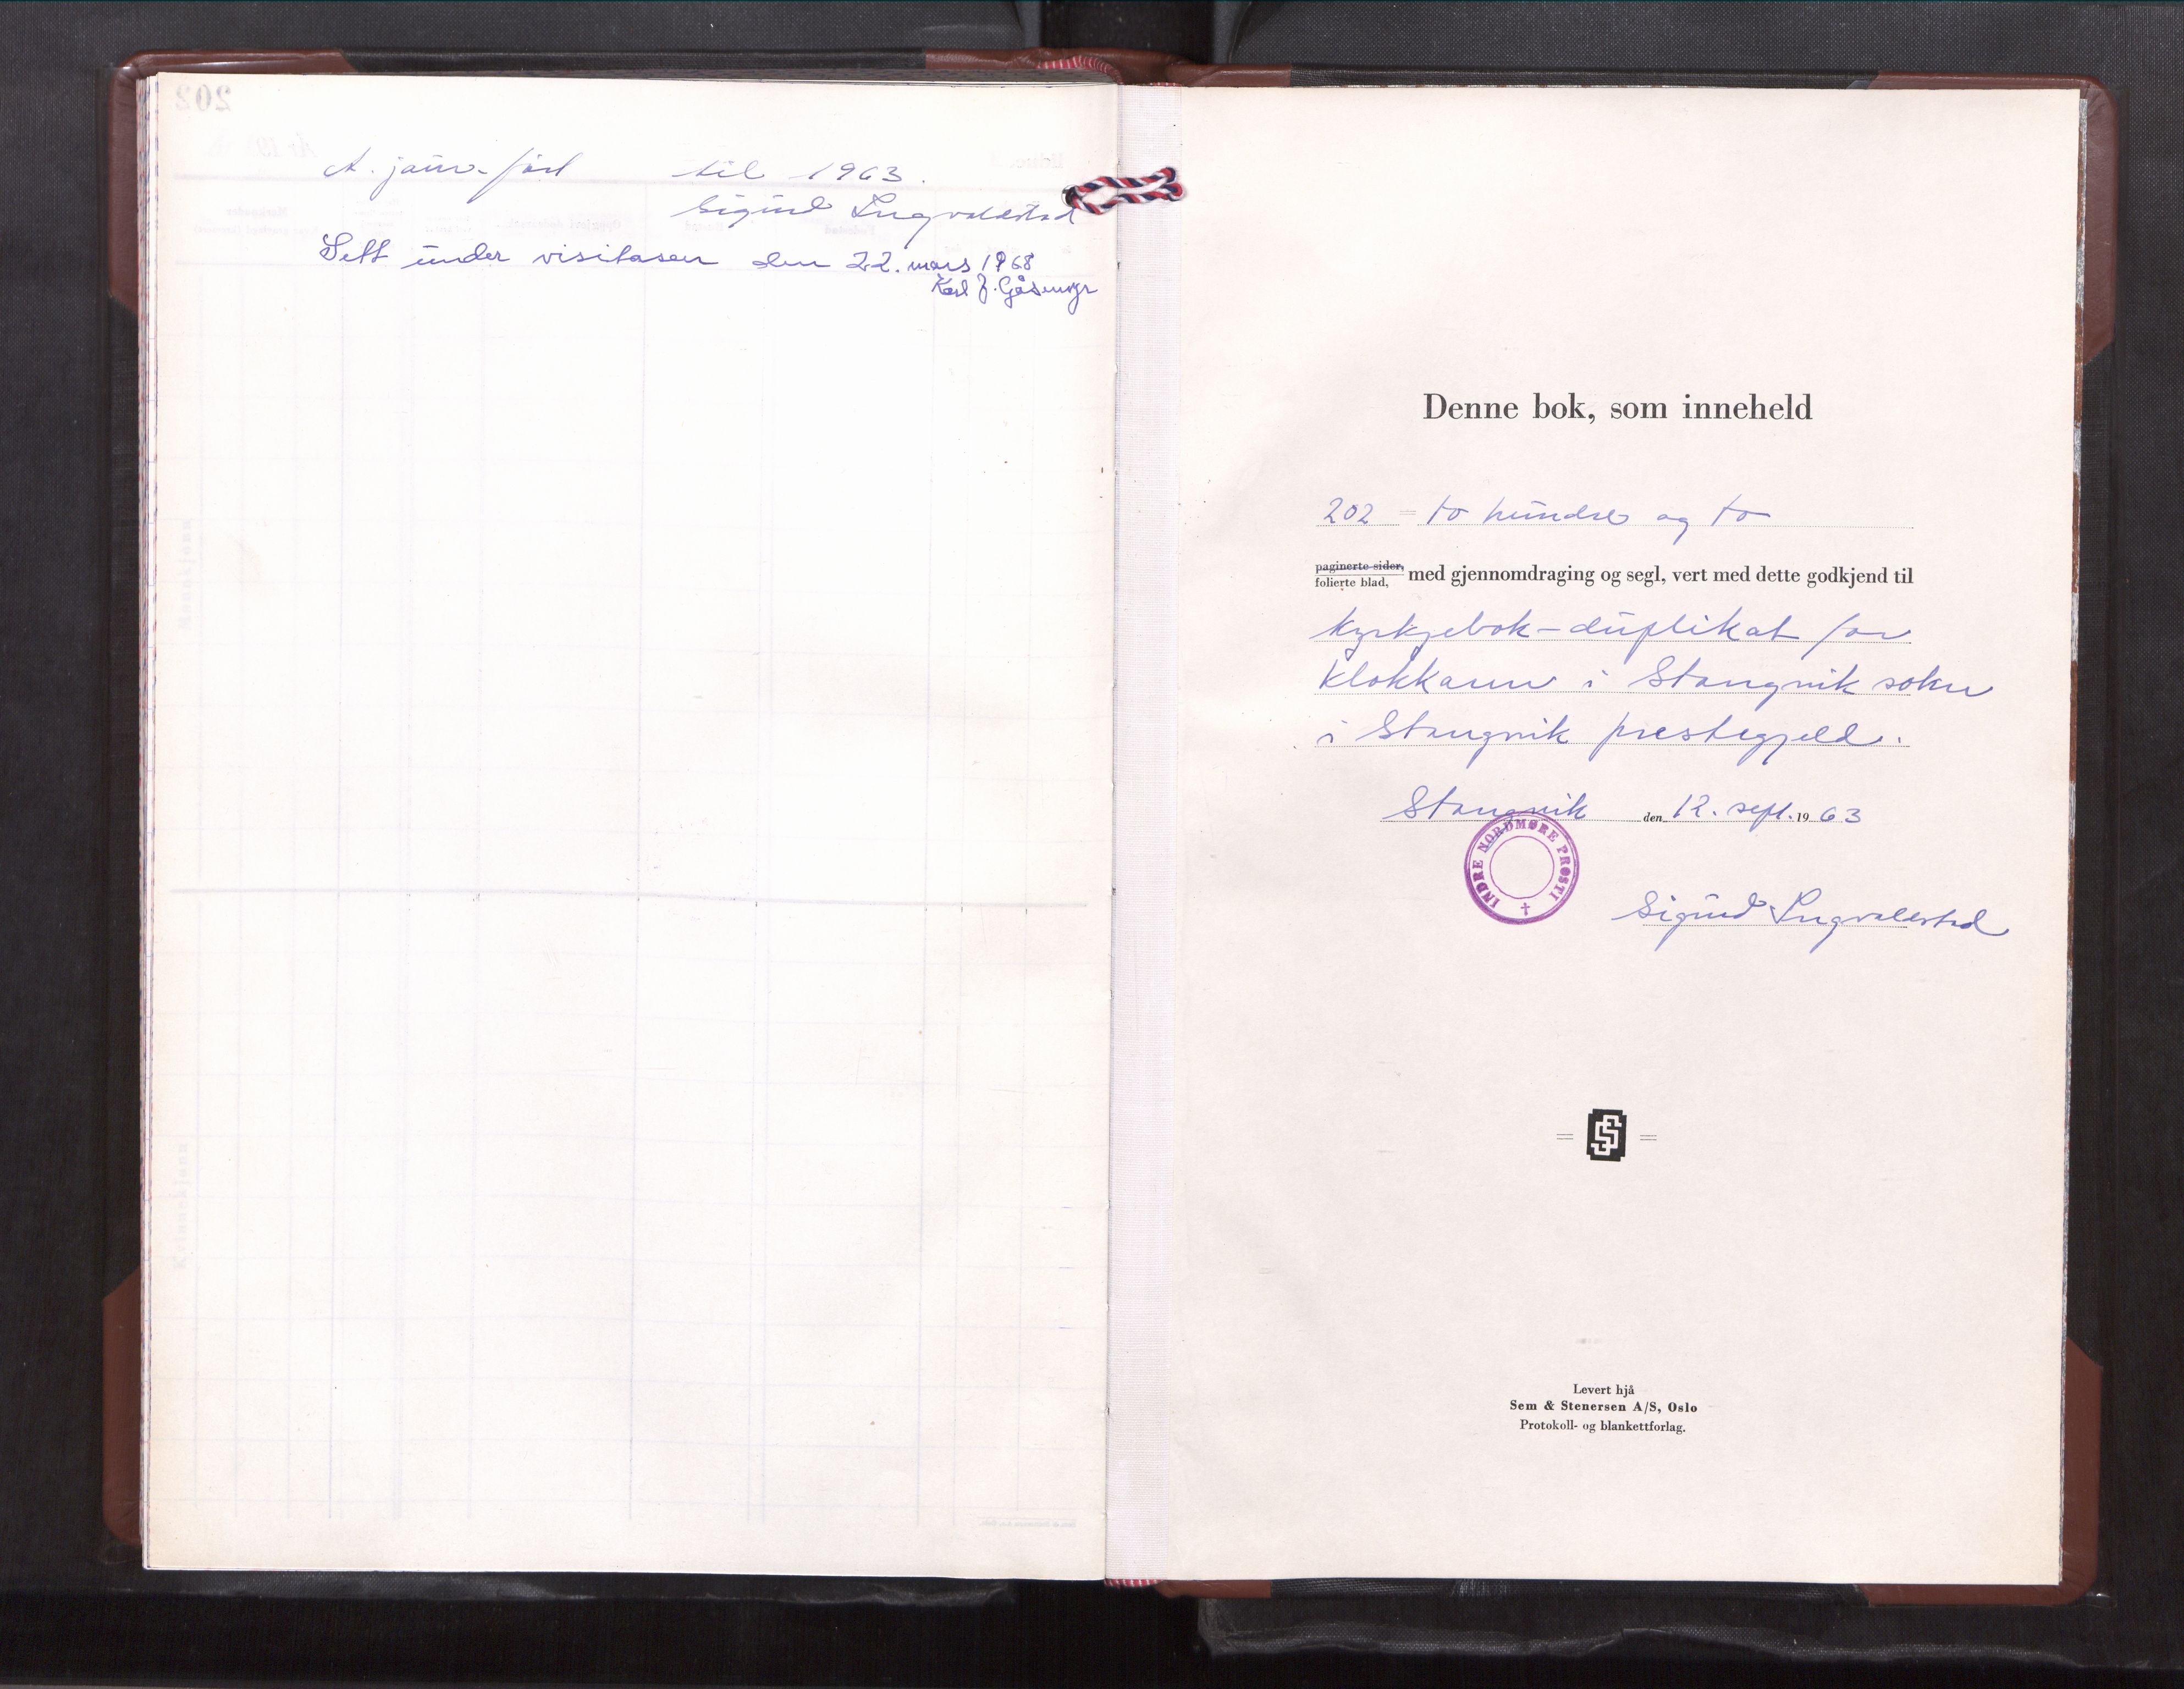 A. jamnført til 1963.
Sigurd Lngvaldstad
Sett under visitasen den 22. mars 1968
Karl J. Gåsmyr
Denne bok, som inneheld
202 = to hundre og to
paginerte sider,
folierte blad, med gjennomdraging og segl, vert med dette godkjend til
kyrkjebok-duplikat for
klokkaren i Stangvik sokn
i Stangvik prestegjeld.
Stangvik den 12. sept. 1963
INDRE NORDMØRE PROSTI
Sigurd
SS
Levert hjå
Sem & Stenersen A/S, Oslo
Protokoll- og blankettforlag.